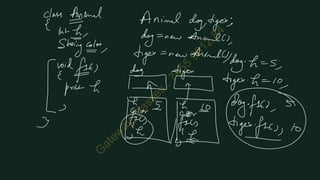 class Animal
{
int h,
String color,
void f1()
{
print h
}
}
Animal dog, tiger;
dog = new Animal();
tiger = new Animal();
dog tiger
h 5
f1()
h
h 10
f1()
h
dog.h=5,
tiger.h=10,
dog.f1(), 5
tiger.f1(), 10